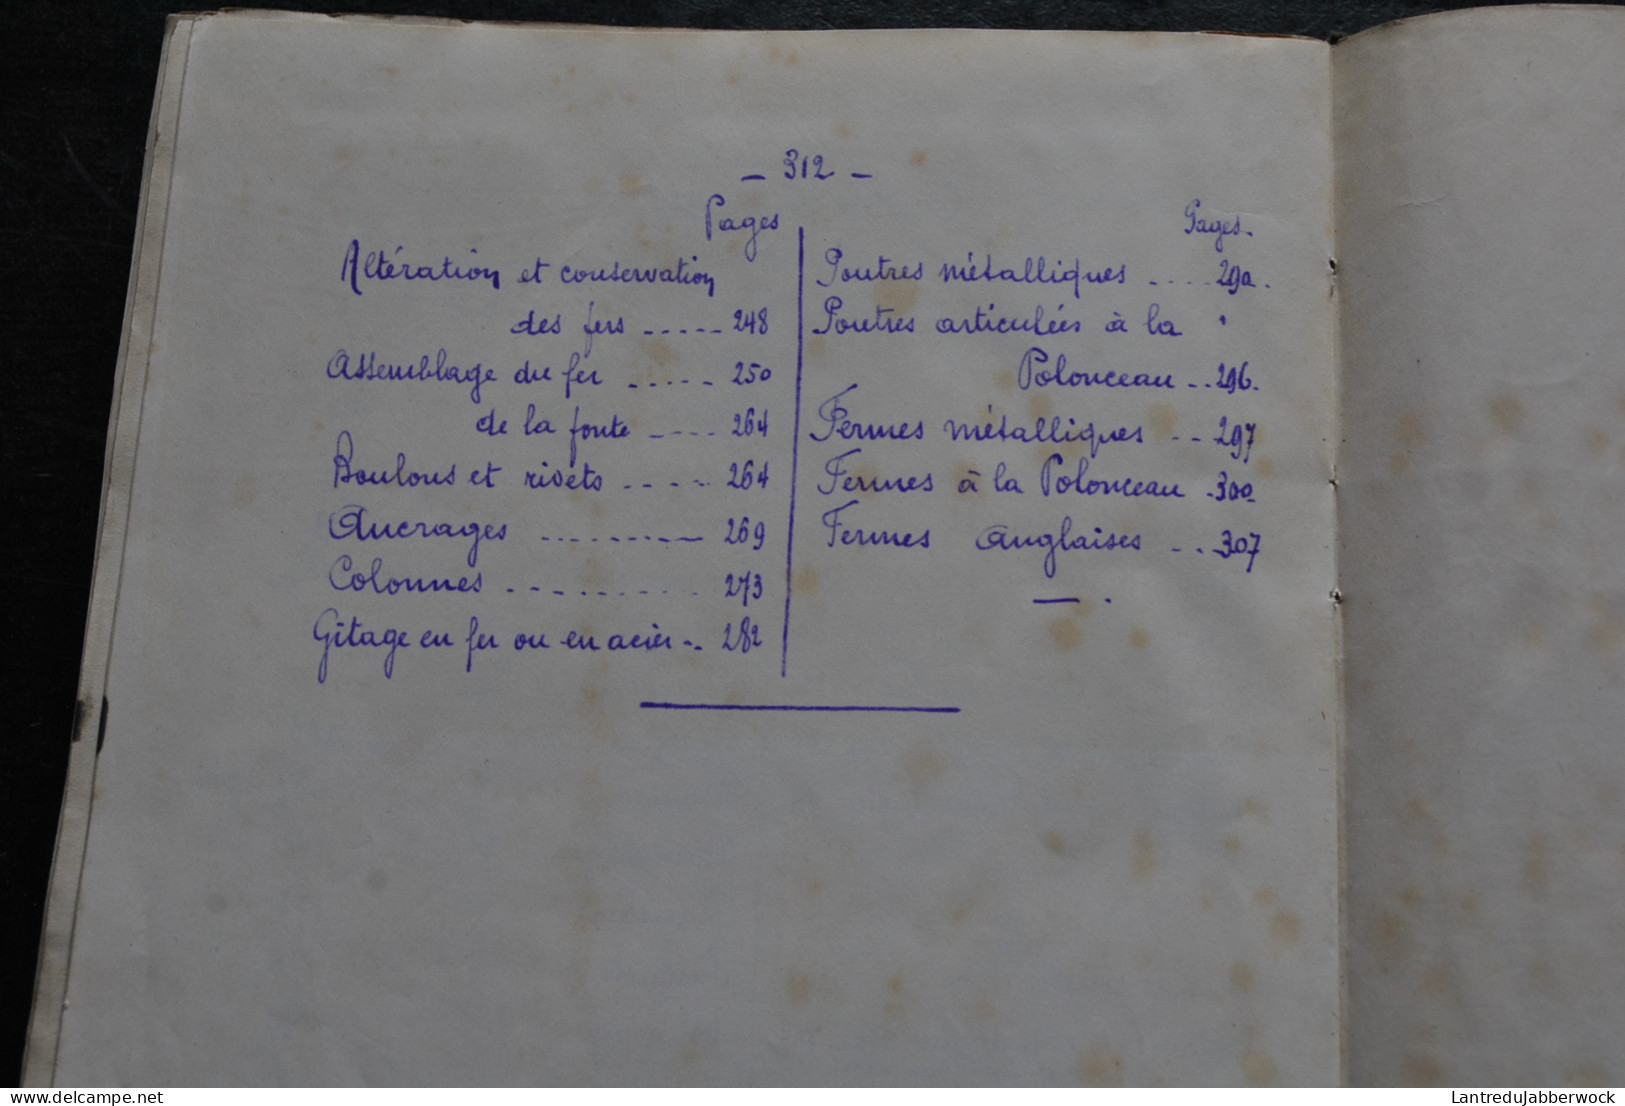 – 312 –
Pages
Altération et conservation
des fers ..... 248
Assemblage du fer ..... 250
de la fonte .... 264
Boulons et rivets ..... 264
Ancrages .......... 269
Colonnes .......... 273
Gitage en fer ou en acier .. 282
Pages.
Poutres métalliques .... 290.
Poutres articulées à la
Polonceau .. 296.
Fermes métalliques .. 297
Fermes à la Polonceau . 300
Fermes anglaises .. 307
delcampe.net
LantreduJabberwock